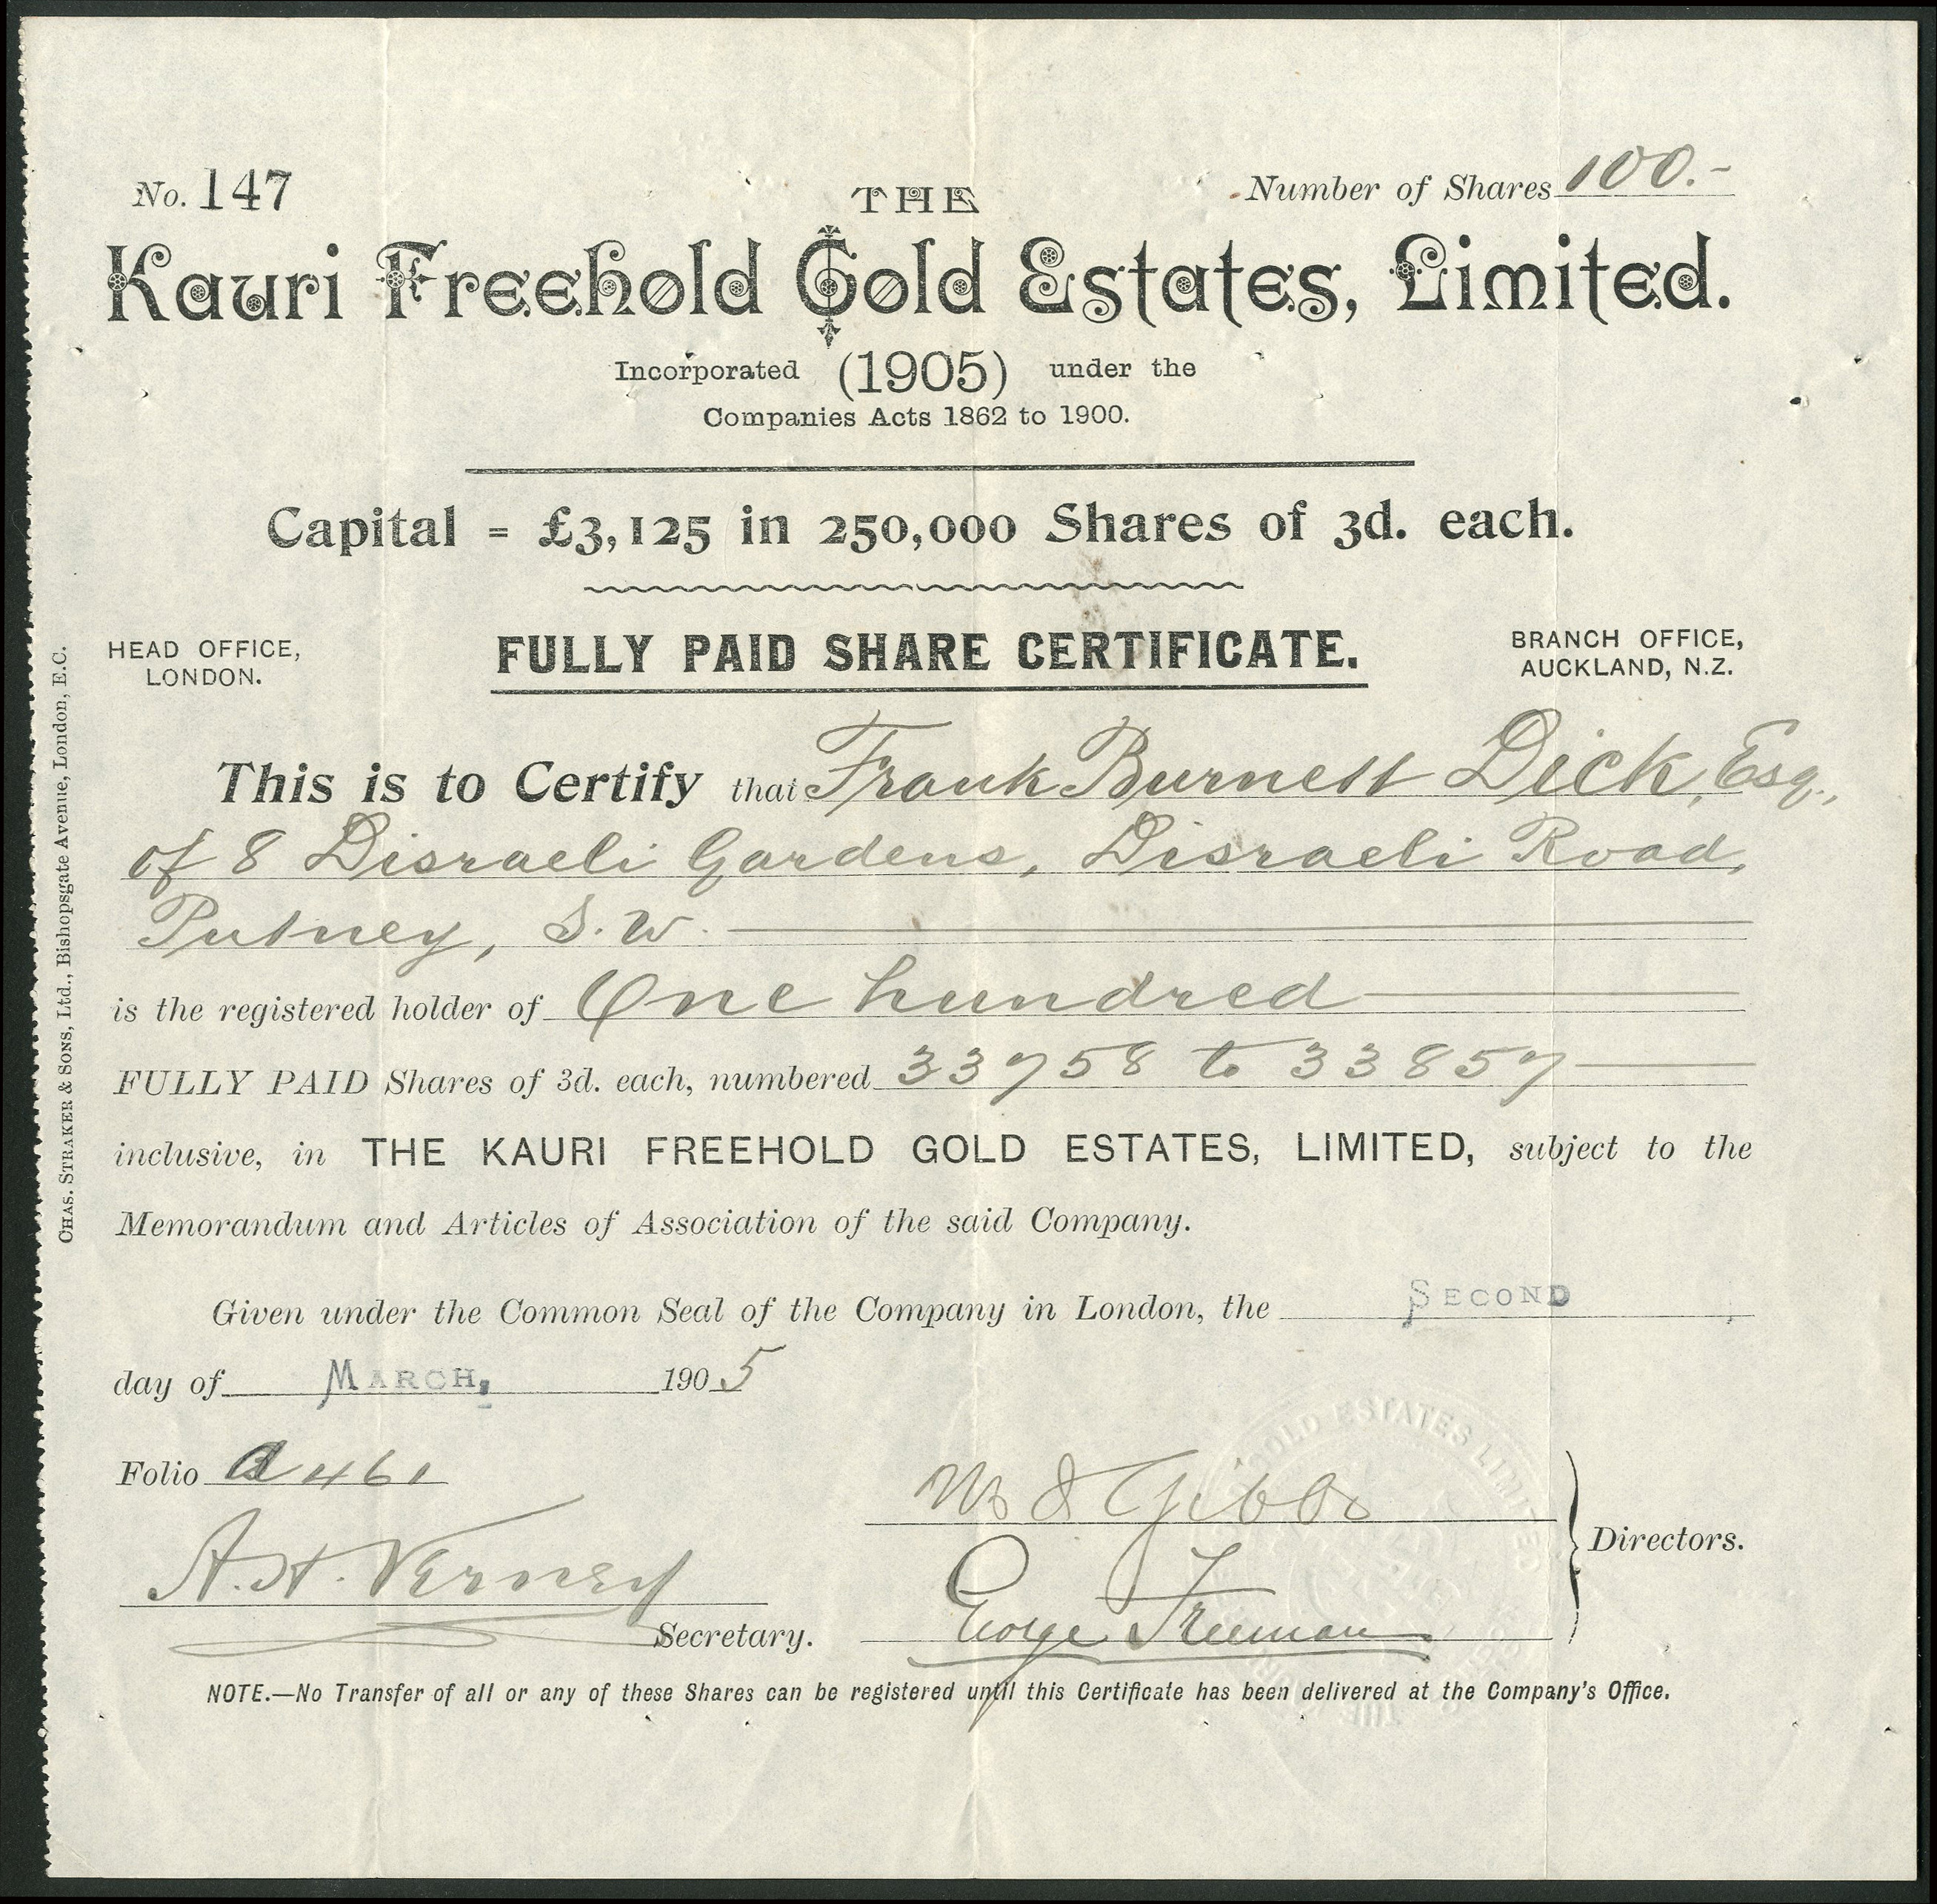 No. 147
Number of Shares 100.-
THE
Kauri Freehold Gold Estates, Limited.
Incorporated (1905) under the
Companies Acts 1862 to 1900.
Capital = £3,125 in 250,000 Shares of 3d. each.
HEAD OFFICE,
LONDON.
FULLY PAID SHARE CERTIFICATE.
BRANCH OFFICE,
AUCKLAND, N.Z.
This is to Certify that Frank Burnett Dick, Esq.,
of 8 Disraeli Gardens, Disraeli Road,
Putney, S.W.
is the registered holder of One hundred
FULLY PAID Shares of 3d. each, numbered 33758 to 33857
inclusive, in THE KAURI FREEHOLD GOLD ESTATES, LIMITED, subject to the
Memorandum and Articles of Association of the said Company.
Given under the Common Seal of the Company in London, the SECOND
day of MARCH, 1905
Folio a 461
Gibbs
A. H. Verney
Secretary.
George Freeman
Directors.
NOTE.—No Transfer of all or any of these Shares can be registered until this Certificate has been delivered at the Company's Office.
CHAS. STRAKER & SONS, Ltd., Bishopsgate Avenue, London, E.C.
GOLD ESTATES LIMITED